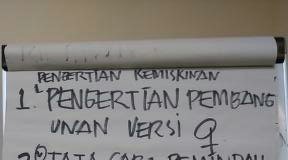 PENGERTIAN KEMISKINAN
1. PENGERTIAN PEMBANG
UNAN VERSI 9
TATA CARA PEMINDAH